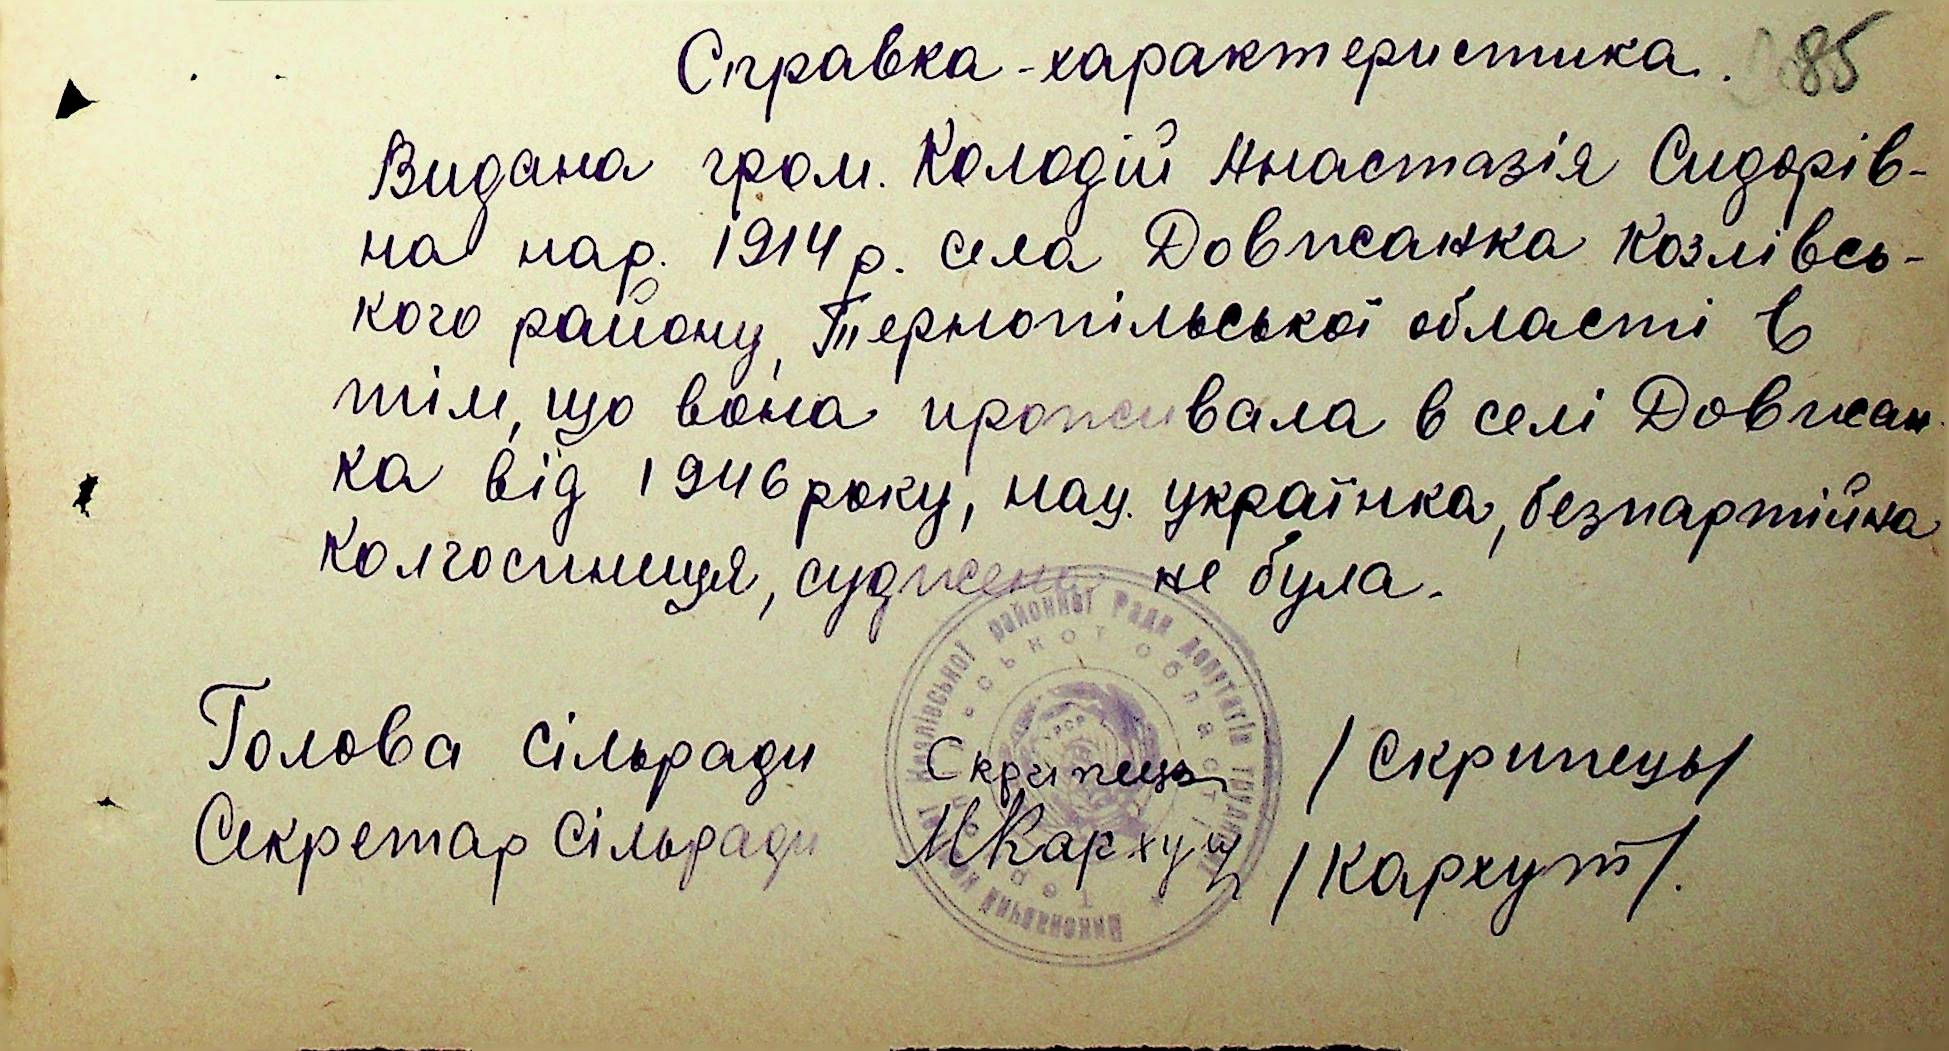 Справка-характеристика. 85
Видана гром. Колодій Анастазія Сидорів-
на нар. 1914 р. села Довжанка Козлівсь-
кого району, Тернопільської області в
тім, що вона проживала в селі Довжан-
ка від 1946 року, нац. українка, безпартійна
колгоспниця, суджена не була.
Голова сільради Скрипець /Скрипець/
Секретар сільради МКархут /Кархут/.
Козлівської районної Ради депутатів трудящих
області